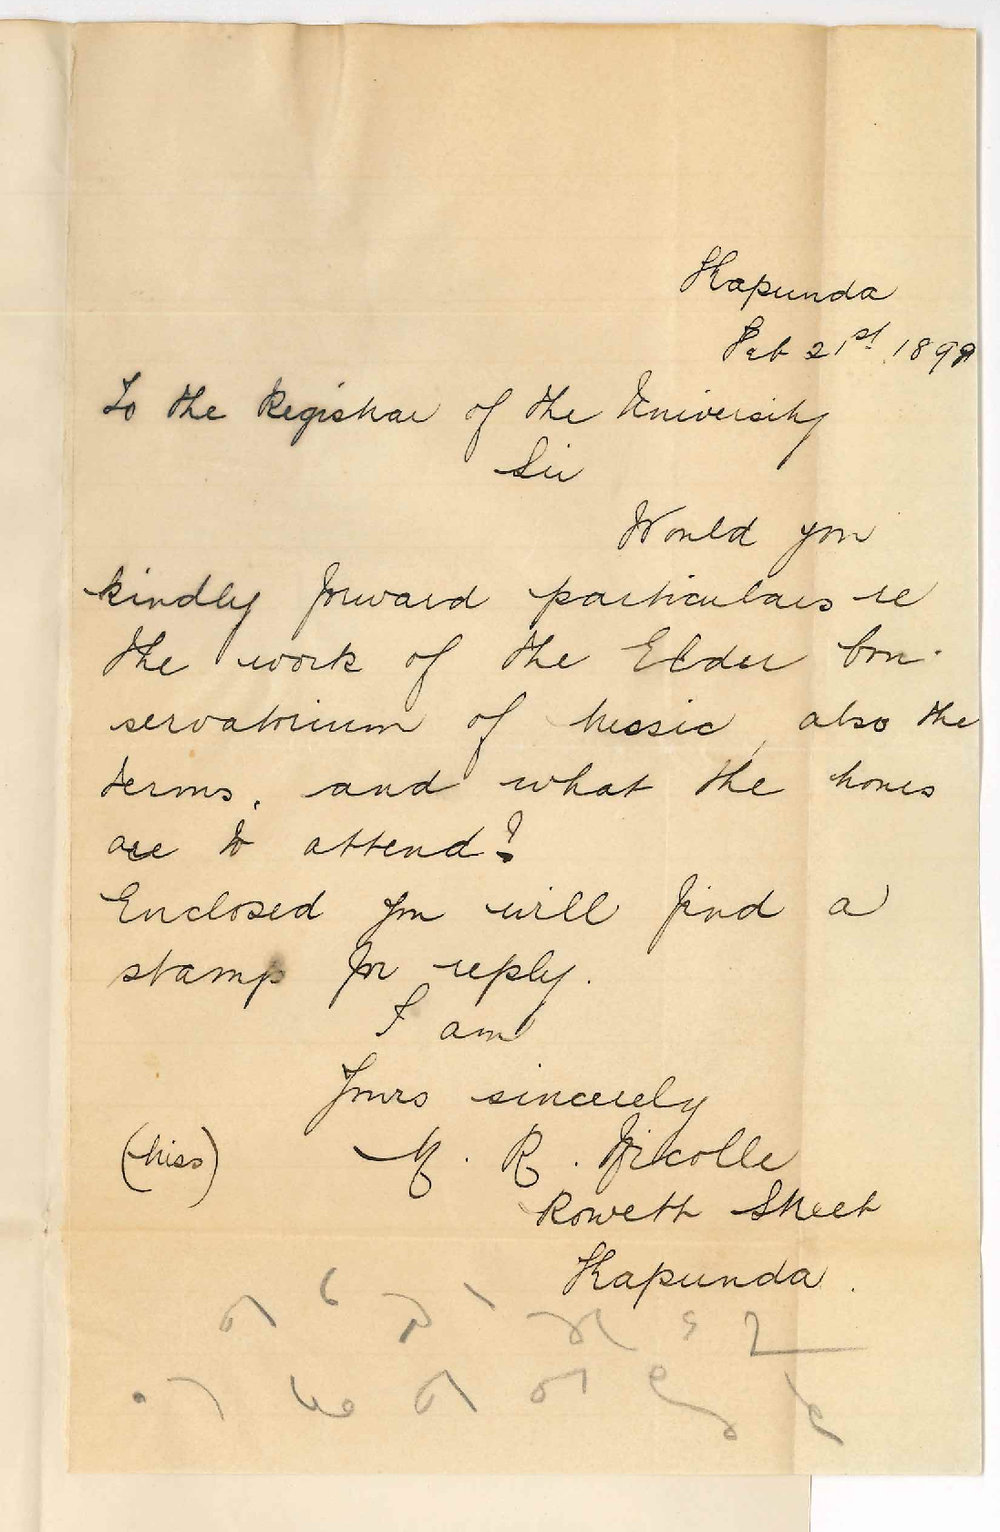 Kapunda
Feb 21st 1899
To the Registrar of the University
Sir
Would you
kindly forward particulars re
the work of the Elder Con-
servatorium of Music, also the
terms, and what the hours
are to attend?
Enclosed you will find a
stamp for reply.
I am
Yours sincerely
(Miss) M. R. Nicolle
Roweth Street
Kapunda.